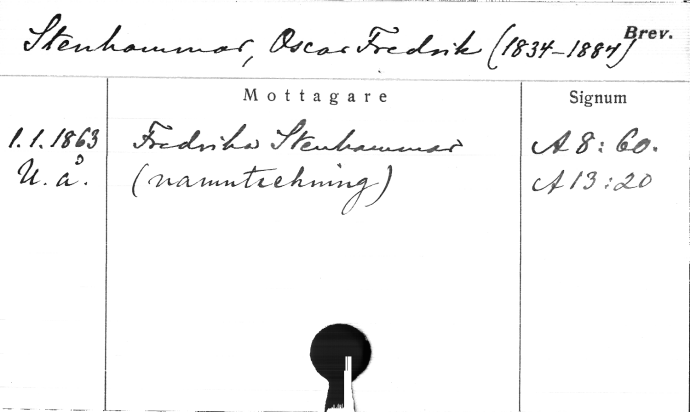 Stenhammar, Oscar Fredrik (1834-1884) Brev.
Mottagare Signum
1.1.1863 Fredrika Stenhammar A 8:60.
U.å. (namnteckning) A 13:20